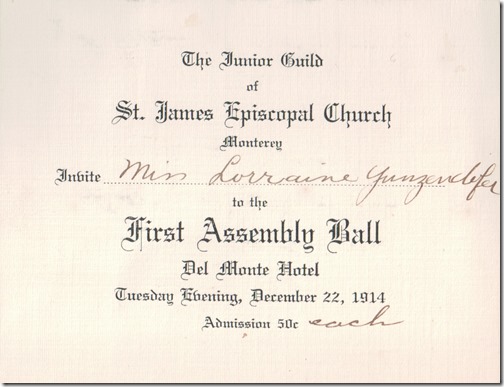 The Junior Guild
of
St. James Episcopal Church
Monterey
Invite Miss Lorraine Gunzendorfer
to the
First Assembly Ball
Del Monte Hotel
Tuesday Evening, December 22, 1914
Admission 50c each